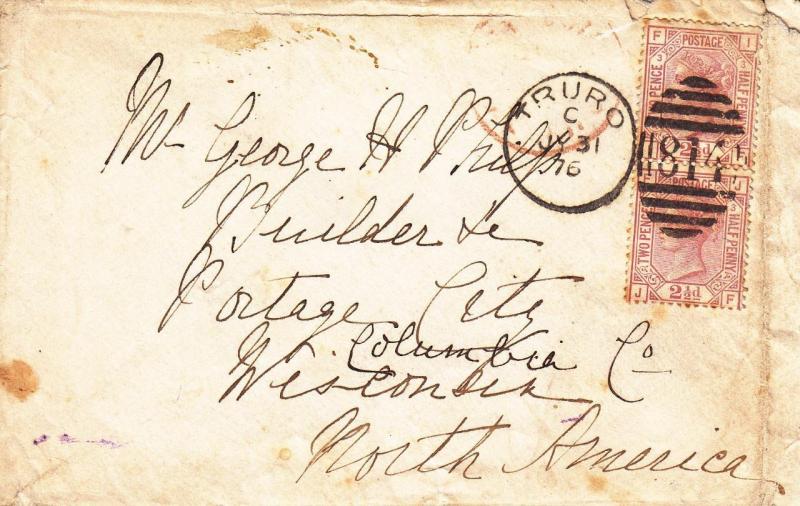 Mr George H Philps
Builder &c
Portage City
Columbia Co
Wisconsin
North America
TRURO
C
31
76
814
F POSTAGE I
3 3
PENCE HALF PENNY
POSTAGE J
3
TWO PENCE HALF PENNY
J 2½d F